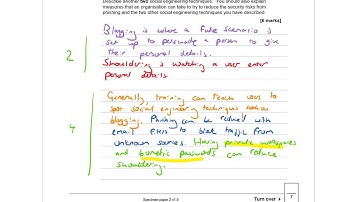 Describe another two social engineering techniques. You should also explain
measures that an organisation can take to try to reduce the security risks from
phishing and the two other social engineering techniques you have described.
[6 marks]
Blagging is where a fake scenario is
set up to persuade a person to give
their personal details.
Shouldering is watching a user enter
personal details
2
Generally, training can teach users to
spot social engineering techniques such as
blagging. Phishing can be reduced with
email filters to block traffic from
unknown sources. Having private workspaces
and biometric passwords can reduce
shouldering.
4
Turn over
7